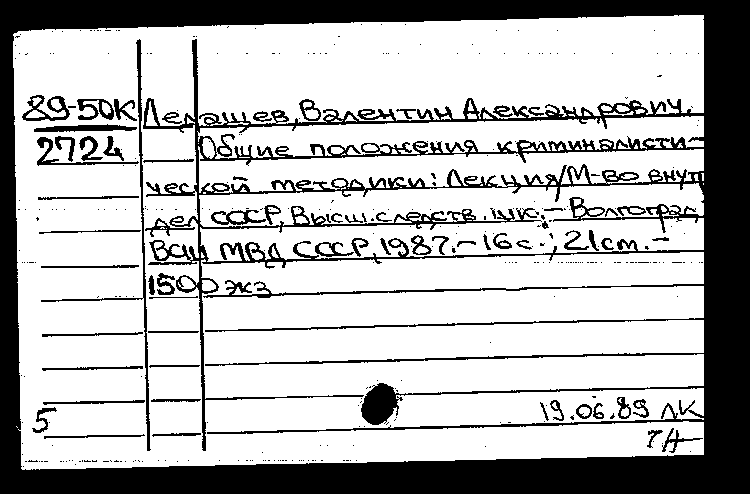 89-50К Ледащев, Валентин Александрович.
2724 Общие положения криминалисти-
ческой методики: Лекция/М-во внут
дел СССР, Высш. следств. шк. - Волгоград
ВСШ МВД СССР, 1987. - 16 с.; 21 см. -
1500 экз
5
19.06.89 ЛК